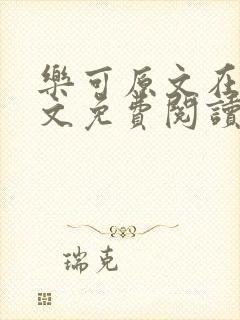 樂可原文在
文免費閱讀
瑞克